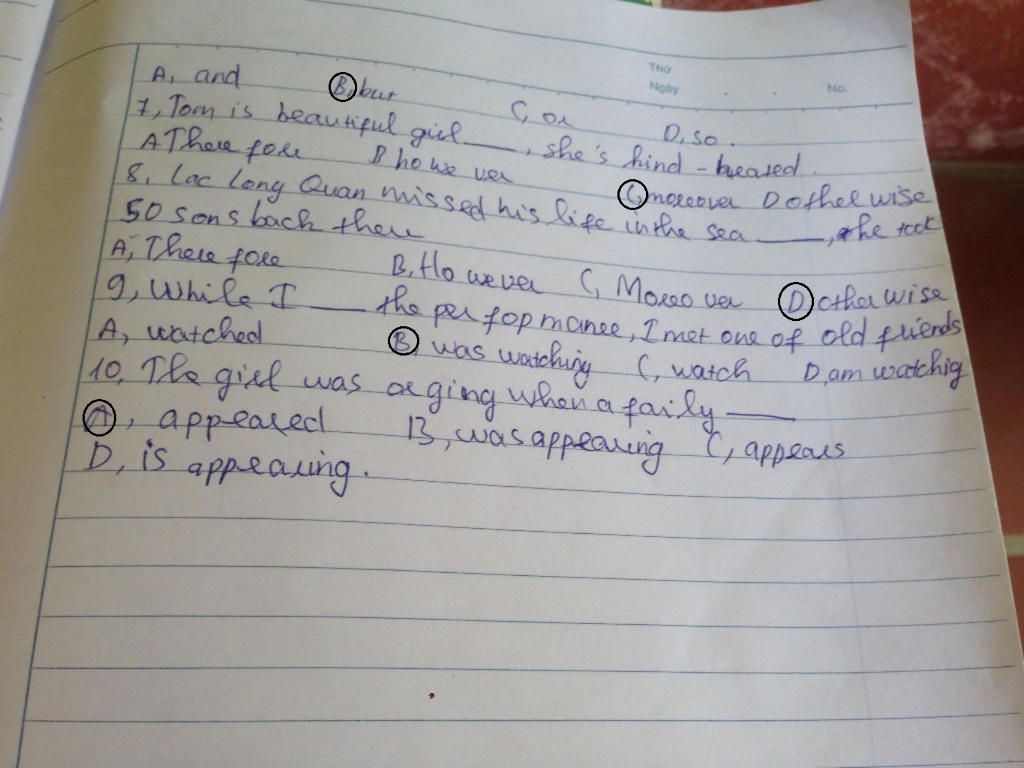 Thứ
Ngày No.
A, and B, but C, or D, so.
7, Tom is beautiful girl ____, she's kind-hearted.
A There fore B howe ver C, moreover D otherwise
8, Lac Long Quan missed his life in the sea ____, he took
50 sons back there
A, There fore B, However C, Moreover D otherwise
9, While I ____ the perfopmance, I met one of old friends
A, watched B, was watching C, watch D, am watchig
10, The girl was crging when a faily ____
A, appeared B, was appearing C, appears
D, is appearing.